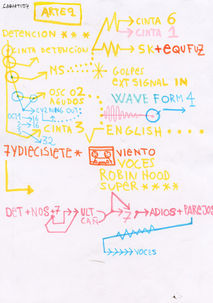 ARTE 2
DETENCION * * *
CINTA 6
CINTA 1
CINTA DETENCION
5K + EQUFUZ
MS
GOLPES
EXT SIGNAL IN
OSC 02
AGUDOS
WAVE FORM 4
OUT:
16
CINTA 3
ENGLISH
32
7 YDIECISIETE *
VIENTO
VOCES
ROBIN HOOD
SUPER * * * *
DET + NOS + 7
ULT
CAÑ
7
ADIOS + PAREJOS
VOCES